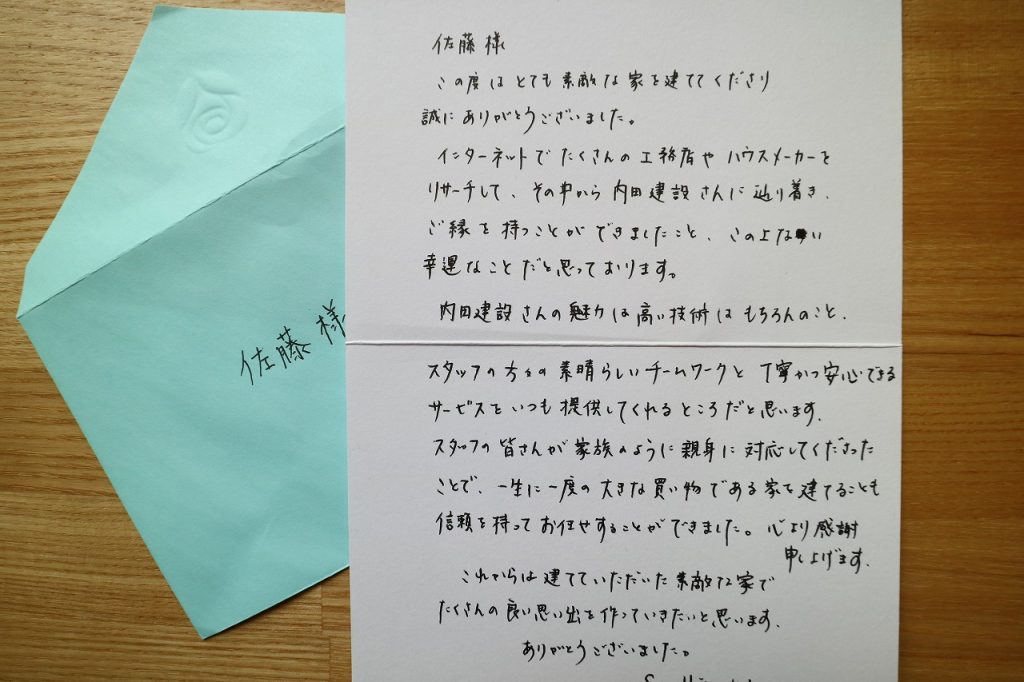 佐藤様
この度はとても素敵な家を建ててくださり
誠にありがとうございました。
インターネットでたくさんの工務店やハウスメーカーを
リサーチして、その中から内田建設さんに辿り着き、
ご縁を持つことができましたこと、この上ない
幸運なことだと思っております。
内田建設さんの魅力は高い技術はもちろんのこと、
スタッフの方々の素晴らしいチームワークと丁寧かつ安心できる
サービスをいつも提供してくれるところだと思います。
スタッフの皆さんが家族のように親身に対応してくださった
ことで、一生に一度の大きな買い物である家を建てることも
信頼を持ってお任せすることができました。心より感謝
申し上げます。
これからは建てていただいた素敵な家で
たくさんの良い思い出を作っていきたいと思います。
ありがとうございました。
佐藤様